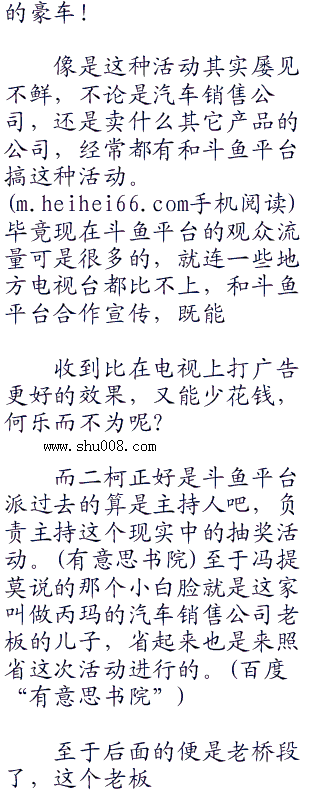 的豪车！
像是这种活动其实屡见
不鲜，不论是汽车销售公
司，还是卖什么其它产品的
公司，经常都有和斗鱼平台
搞这种活动。
(m.heihei66.com手机阅读)
毕竟现在斗鱼平台的观众流
量可是很多的，就连一些地
方电视台都比不上，和斗鱼
平台合作宣传，既能
收到比在电视上打广告
更好的效果，又能少花钱，
何乐而不为呢？
www.shu008.com
而二柯正好是斗鱼平台
派过去的算是主持人吧，负
责主持这个现实中的抽奖活
动。(有意思书院)至于冯提
莫说的那个小白脸就是这家
叫做丙玛的汽车销售公司老
板的儿子，省起来也是来照
省这次活动进行的。(百度
“有意思书院”)
至于后面的便是老桥段
了，这个老板